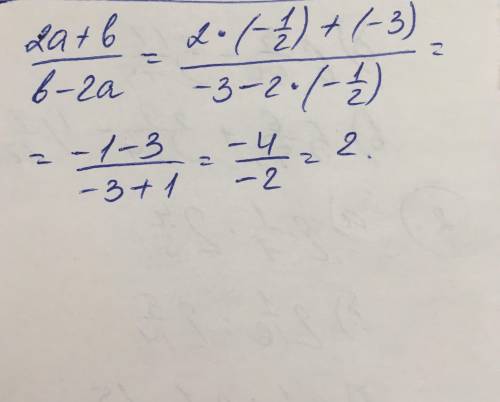 (2a + b)/(b - 2a) = (2 · (-1/2) + (-3))/(-3 - 2 · (-1/2)) =
= (-1 - 3)/(-3 + 1) = (-4)/(-2) = 2.